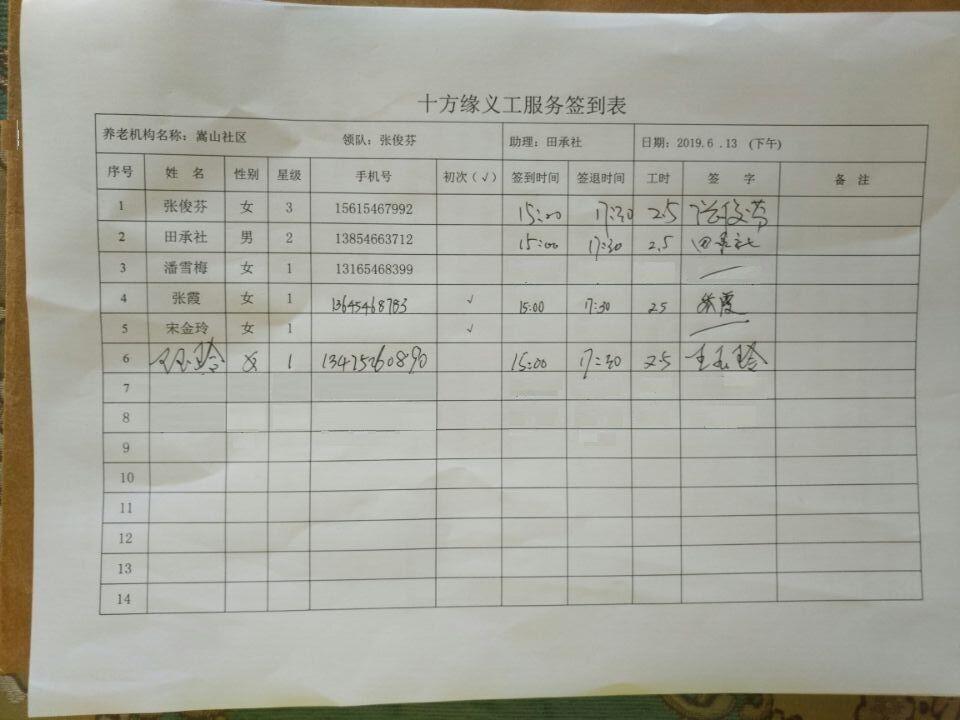 十方缘义工服务签到表
养老机构名称：嵩山社区 领队：张俊芬 助理：田承社 日期：2019.6.13（下午）
序号 姓 名 性别 星级 手机号 初次（√） 签到时间 签退时间 工时 签 字 备 注
1 张俊芬 女 3 15615467992 15:00 17:30 2.5 张俊芬
2 田承社 男 2 13854663712 15:00 17:30 2.5 田承社
3 潘雪梅 女 1 13165468399
4 张霞 女 1 13645468783 √ 15:00 17:30 2.5 张霞
5 宋金玲 女 1 √
6 王玉玲 女 1 13425260890 15:00 17:30 2.5 王玉玲
7
8
9
10
11
12
13
14